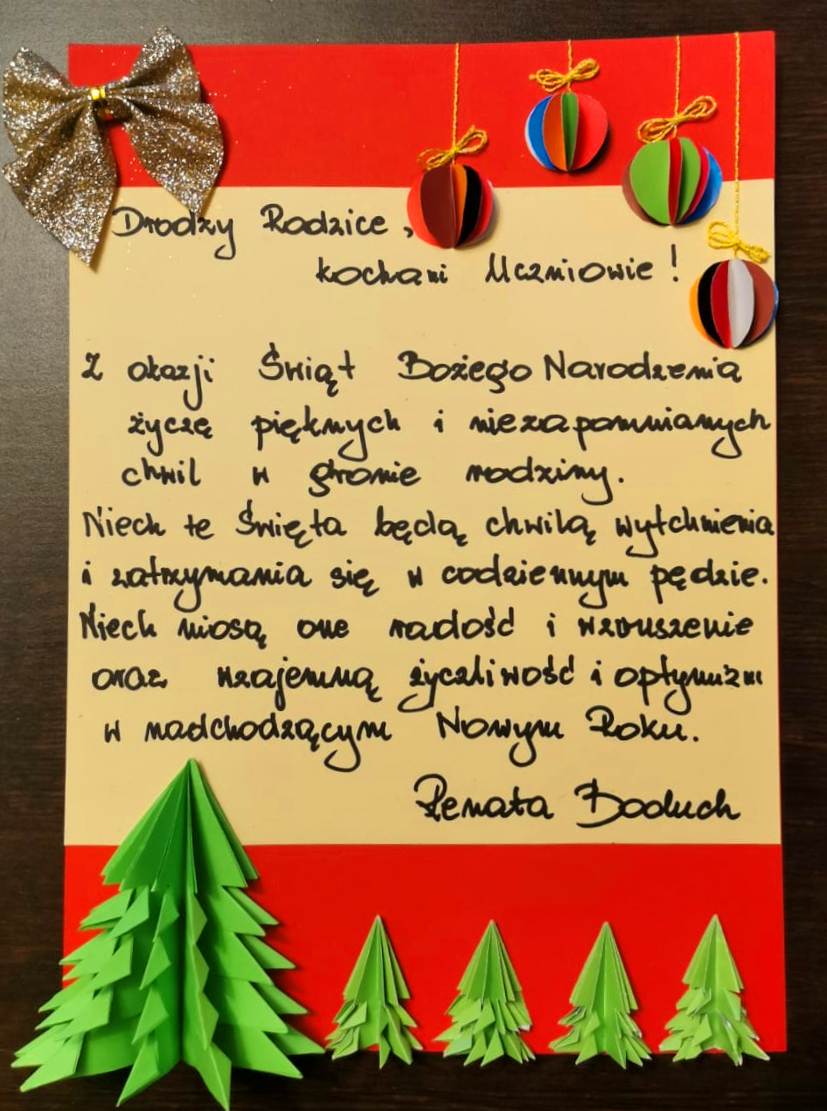 Drodzy Rodzice,
kochani Uczniowie!
Z okazji Świąt Bożego Narodzenia
życzę pięknych i niezapomnianych
chwil w gronie rodziny.
Niech te Święta będą chwilą wytchnienia
i zatrzymania się w codziennym pędzie.
Niech niosą one radość i wzruszenie
oraz wzajemną życzliwość i optymizm
w nadchodzącym Nowym Roku.
Renata Boduch